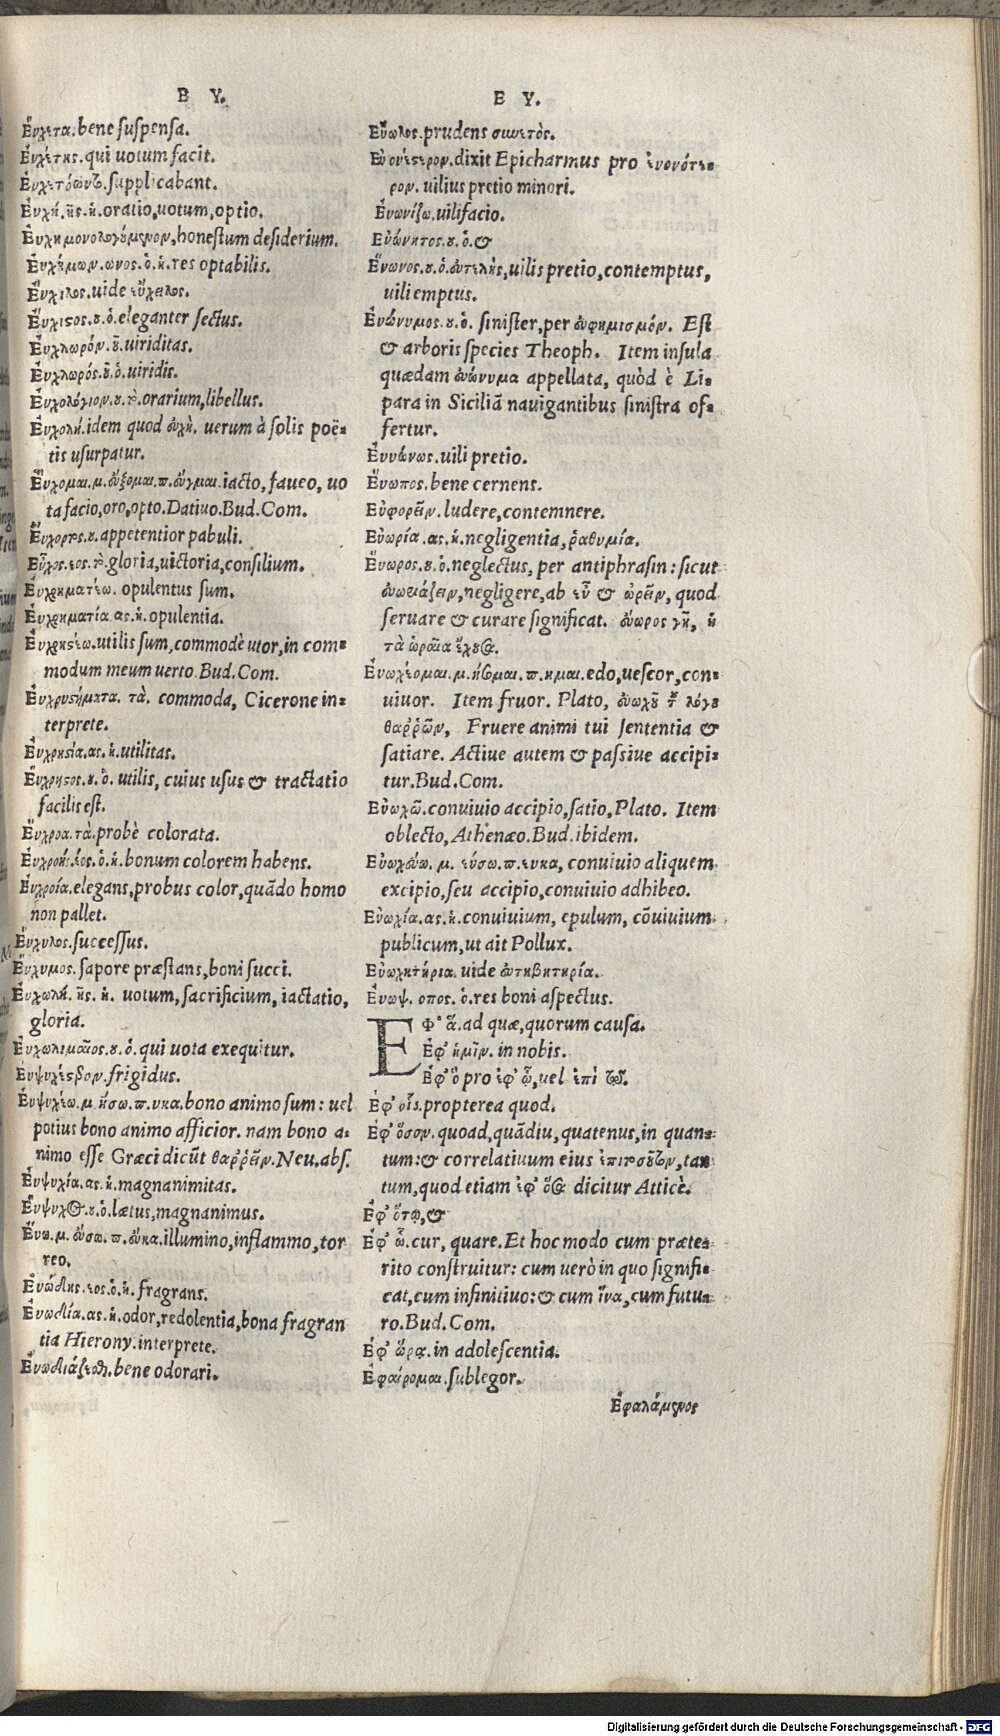 Ε Υ.
Εὔχετα. bene suspensa.
Εὐχέτης. qui uotum facit.
Εὐχετόωντο. supplicabant.
Εὐχή. ῆς. ἡ. oratio, uotum, optio.
Εὐχὴ μονολογούμενον, honestum desiderium.
Εὐχήμων. ωνος. ὁ. ἡ. res optabilis.
Εὔχιλος. uide εὔχειλος.
Εὔχιστος. ου. ὁ. eleganter sectus.
Εὐχλωρόν. οῦ. uiriditas.
Εὐχλωρός. οῦ. ὁ. uiridis.
Εὐχολόγιον. ου. τὸ. orarium, libellus.
Εὐχολή. idem quod εὐχή. uerum à solis poë-
tis usurpatur.
Εὔχομαι. μ. εὔξομαι. π. εὖγμαι. iacto, faueo, uo
ta facio, oro, opto. Datiuo. Bud. Com.
Εὔχορτος. ου. appetentior pabuli.
Εὖχος. εος. τὸ. gloria, uictoria, consilium.
Εὐχρηματέω. opulentus sum.
Εὐχρηματία. ας. ἡ. opulentia.
Εὐχρηστέω. utilis sum, commodè utor, in com-
modum meum uerto. Bud. Com.
Εὐχρηστήματα. τὰ. commoda, Cicerone in-
terprete.
Εὐχρηστία. ας. ἡ. utilitas.
Εὔχρηστος. ου. ὁ. utilis, cuius usus & tractatio
facilis est.
Εὔχροα. τὰ. probè colorata.
Εὐχροής. έος. ὁ. ἡ. bonum colorem habens.
Εὐχροία. elegans, probus color, quãdo homo
non pallet.
Εὔχυλος. successus.
Εὔχυμος. sapore præstans, boni succi.
Εὐχωλή. ῆς. ἡ. uotum, sacrificium, iactatio,
gloria.
Εὐχωλιμαῖος. ου. ὁ. qui uota exequitur.
frigidus.
Εὐψυχέω. μ. ήσω. π. υκα. bono animo sum: uel
potius bono animo afficior. nam bono a-
nimo esse Græci dicũt θαῤῥεῖν. Neu. abs.
Εὐψυχία. ας. ἡ. magnanimitas.
Εὔψυχος. ου. ὁ. lætus, magnanimus.
Εὔω. μ. εὔσω. π. εὖκα. illumino, inflammo, tor
reo.
Εὐώδης. εος. ὁ. ἡ. fragrans.
Εὐωδία. ας. ἡ. odor, redolentia, bona fragran
tia Hierony. interprete.
Εὐωδιάζεσθαι. bene odorari.
Ε Υ.
Εὔωλος. prudens συνετὸς.
Εὐονέστερον. dixit Epicharmus pro εὐονότε-
ρον. uilius pretio minori.
Εὐωνίζω. uilifacio.
Εὐώνητος. ου. ὁ. &
Εὔωνος. ου. ὁ. εὐτελὴς, uilis pretio, contemptus,
uili emptus.
Εὐώνυμος. ου. ὁ. sinister, per εὐφημισμόν. Est
& arboris species Theoph. Item insula
quædam εὐώνυμα appellata, quòd è Li-
para in Siciliã nauigantibus sinistra of-
fertur.
Εὐώνως. uili pretio.
Εὔωπος. bene cernens.
Εὐφορεῖν. ludere, contemnere.
Εὐωρία. ας. ἡ. negligentia, ῥαθυμία.
Εὔωρος. ου. ὁ. neglectus, per antiphrasin: sicut
εὐωριάζειν, negligere, ab εὖ & ὠρεῖν, quod
seruare & curare significat. εὔωρος γῆ, ἡ
τὰ ὡραῖα ἔχουσα.
Εὐωχέομαι. μ. ήσομαι. π. ημαι. edo, uescor, con-
uiuor. Item fruor. Plato, εὐωχοῦ τοῦ λόγου
θαῤῥῶν, Fruere animi tui sententia &
satiare. Actiue autem & passiue accipi-
tur. Bud. Com.
Εὐωχῶ. conuiuio accipio, satio, Plato. Item
oblecto, Athenæo. Bud. ibidem.
Εὐωχεύω. μ. εύσω. π. ευκα, conuiuio aliquem
excipio, seu accipio, conuiuio adhibeo.
Εὐωχία. ας. ἡ. conuiuium, epulum, cõuiuium
publicum, ut ait Pollux.
Εὐωχητήρια. uide
Εὔωψ. οπος. ὁ. res boni aspectus.
ΕΦ' ἅ. ad quæ, quorum causa.
Ἐφ' ἡμῖν. in nobis.
Ἐφ' ὃ pro ἐφ' ᾧ, uel ἐπὶ τῷ.
Ἐφ' οἷς. propterea quod.
Ἐφ' ὅσον. quoad, quãdiu, quatenus, in quan-
tum: & correlatiuum eius ἐπὶ τοσοῦτον, tan
tum, quod etiam ἐφ' ὅσα dicitur Atticè.
Ἐφ' ὅτῳ, &
Ἐφ' ᾧ. cur, quare. Et hoc modo cum præte-
rito construitur: cum uerò in quo signifi-
cat, cum infinitiuo: & cum ἵνα, cum futu-
ro. Bud. Com.
Ἐφ' ὥρᾳ. in adolescentia.
Ἐφαίρομαι. sublegor.
Ἐφαλάμενος
Digitalisierung gefördert durch die Deutsche Forschungsgemeinschaft - DFG